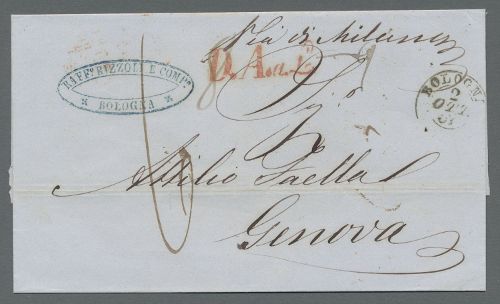 Via di Milano
RAFF.e RIZZOLI E COMP.i
BOLOGNA
BOLOGNA
2
OTT
Sig.r
Attilio Faella
Genova